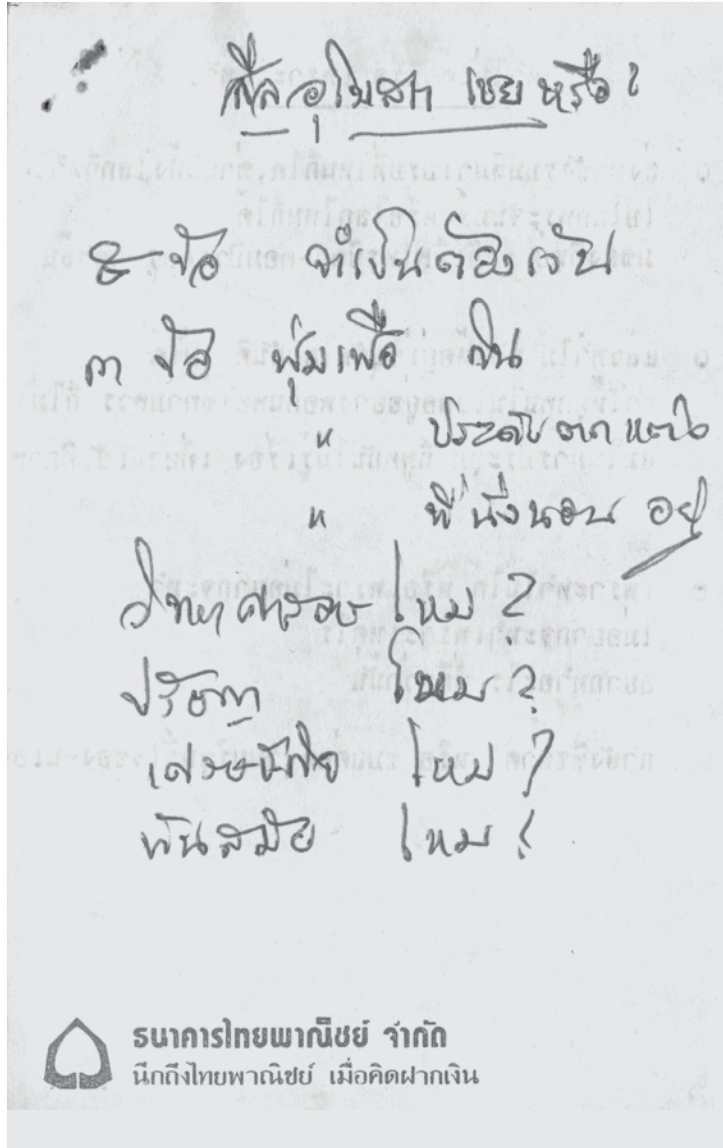 ศีลอุโบสถ เชยหรือ?
๕ ข้อ จำเป็นต้องเว้น
๓ ข้อ ฟุ่มเฟือย กิน
" ประดับตกแต่ง
" ที่นั่งนอน อยู่
วิทยาศาสตร์ ไหม?
ปรัชญา ไหม?
เศรษฐกิจ ไหม?
ทันสมัย ไหม?
ธนาคารไทยพาณิชย์ จำกัด
นึกถึงไทยพาณิชย์ เมื่อคิดฝากเงิน